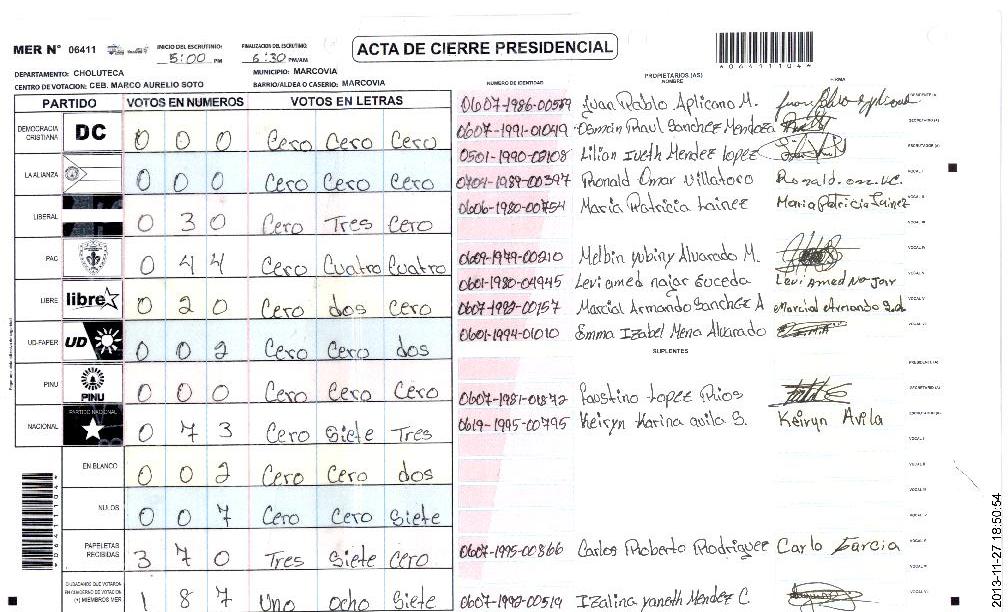 MER N° 06411 INICIO DEL ESCRUTINIO: 5:00 PM FINALIZACION DEL ESCRUTINIO: 6:30 PM/AM
ACTA DE CIERRE PRESIDENCIAL
064111044
DEPARTAMENTO: CHOLUTECA MUNICIPIO: MARCOVIA
CENTRO DE VOTACION: CEB. MARCO AURELIO SOTO BARRIO/ALDEA O CASERIO: MARCOVIA
PARTIDO VOTOS EN NUMEROS VOTOS EN LETRAS
DEMOCRACIA CRISTIANA DC 0 0 0 Cero Cero Cero
LA ALIANZA 0 0 0 Cero Cero Cero
LIBERAL 0 3 0 Cero Tres Cero
PAC 0 4 4 Cero Cuatro Cuatro
LIBRE libre 0 2 0 Cero dos cero
UD-FAPER UD 0 0 2 Cero Cero dos
PINU PINU 0 0 0 Cero Cero Cero
NACIONAL PARTIDO NACIONAL 0 7 3 Cero Siete Tres
EN BLANCO 0 0 2 Cero Cero dos
NULOS 0 0 7 Cero Cero Siete
PAPELETAS RECIBIDAS 3 7 0 Tres Siete Cero
CIUDADANOS QUE VOTARON EN CUADERNO DE VOTACION (+) MIEMBROS MER 1 8 7 Uno ocho Siete
NUMERO DE IDENTIDAD PROPIETARIOS (AS) NOMBRE FIRMA
0607-1986-00559 Juan Pablo Aplicano M. PRESIDENTE (A)
0607-1991-01049 Osman Raul Sanchez Mendoza SECRETARIO (A)
0501-1990-02108 Lilian Iveth Mendez lopez ESCRUTADOR (A)
0704-1987-00397 Ronald Omar Villatoro Ronald. om. V.C. VOCAL I
0606-1980-00754 Maria Patricia Lainez Maria Patricia Lainez VOCAL II
VOCAL III
0609-1979-00210 Melbin yubiny Alvarado M. VOCAL IV
0601-1980-04945 Levi amed najar Euceda Levi Amed Najar VOCAL V
0607-1982-00157 Marcial Armando Sanchez A Marcial Armando VOCAL VI
0601-1994-01010 Emma Izabel Mena Alvarado
SUPLENTES
PRESIDENTE (A)
0607-1981-01872 Faustino Lopez Rios SECRETARIO (A)
0619-1995-00795 Keiryn Karina avila S. Keiryn Avila ESCRUTADOR (A)
VOCAL I
VOCAL II
VOCAL III
VOCAL IV
0607-1995-00866 Carlos Roberto Rodriguez Carlo Garcia VOCAL V
0607-1992-00519 Izalina yaneth Mendez C. VOCAL VI
064111044
2013-11-27 18:50:54